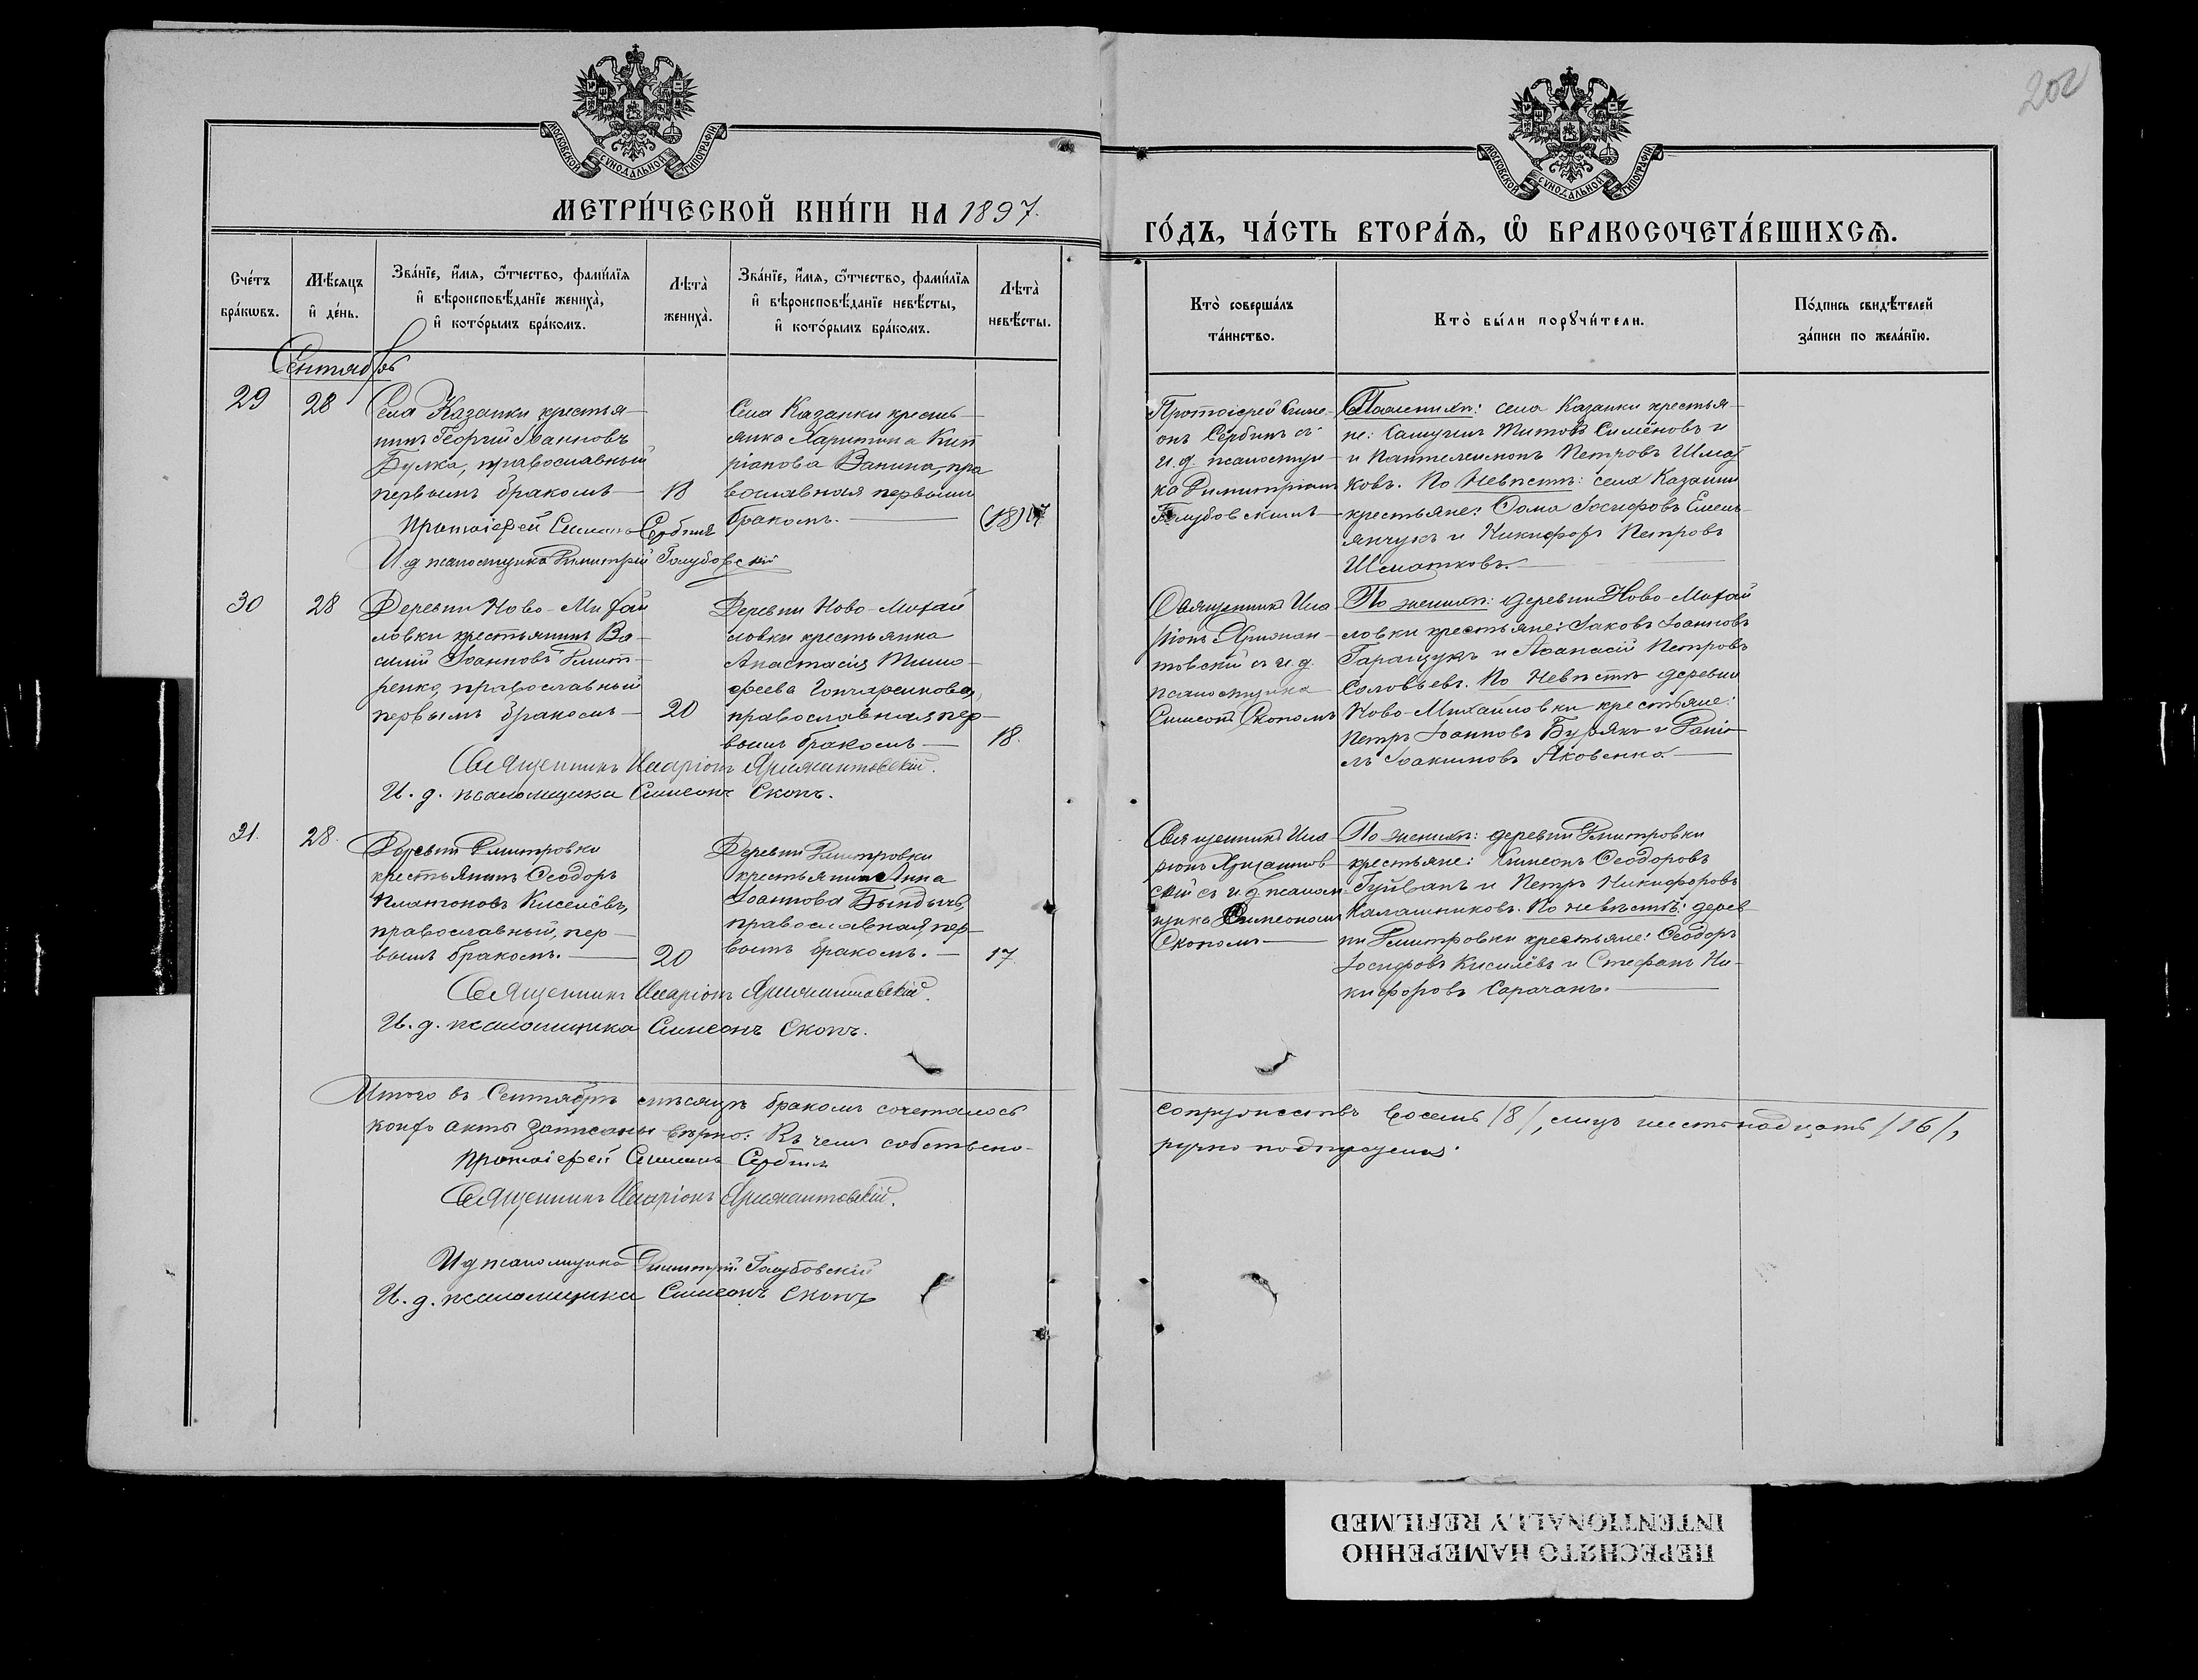 202
МОСКОВСКОЙ СѴНОДАЛЬНОЙ ТИПОГРАФІИ
МОСКОВСКОЙ СѴНОДАЛЬНОЙ ТИПОГРАФІИ
МЕТРИ́ЧЕСКОЙ КНИ́ГИ НА 1897.
ГО́ДЪ, ЧА́СТЬ ВТОРА́Ѧ, Ѽ БРАКОСОЧЕТА́ВШИХСѦ.
Сче́тъ бра́кѡвъ.
Мѣ́сяцъ и҆ де́нь.
Зва́нїе, и҆́мя, ѻ҆́тчество, фамѝлїя и҆ вѣроисповѣ́данїе женихà, и҆ кото́рымъ бра́комъ.
Лѣтà женихà.
Зва́нїе, и҆́мя, ѻ҆́тчество, фамѝлїя и҆ вѣроисповѣ́данїе невѣ́сты, и҆ кото́рымъ бра́комъ.
Лѣтà невѣ́сты.
Ктò соверша́лъ та́инство.
Ктò бы́ли порꙋчи́тели.
По́дпись свидѣ́телей за́писи по жела́нїю.
Сентябрь
29
28
Села Казанки крестья-
нинъ Георгій Іоанновъ
Булка, православный
первымъ бракомъ
18
Села Казанки кресть-
янка Харитина Кип
ріанова Ванина, пра
вославная первымъ
бракомъ.
(18) 17
Протоіерей Симе-
онъ Сербинъ съ
и. д. псаломщи-
ка Димитріемъ
Голубовскимъ
села Казанки крестья-
не: Титовъ Симёновъ и
и Пантелеимонъ Петровъ Шмат
ковъ. По невѣстѣ: села Казанки
крестьяне: Ѳома Іосифовъ Емель-
янчукъ и Никифоръ Петровъ
Шматковъ.
Протоіерей Симеонъ Сербинъ
И д псаломщика Димитрій Голубовскій
30
28
Деревни Ново-Михай
ловки крестьянинъ Ва-
силій Іоанновъ Дмит-
ренко, православный
первымъ бракомъ
20
Деревни Ново-Михай
ловки крестьянка
Анастасія Тимо-
феева Гончаренкова,
православная пер-
вымъ бракомъ
18.
Священникъ Ила
ріонъ Ярмолин-
товскій съ и. д.
псаломщика
Симеономъ Скопомъ
По женихѣ: деревни Ново-Михай
ловки крестьяне: Іаковъ Іоанновъ
Таращукъ и Аѳанасій Петровъ
Соловьевъ. По невѣстѣ деревни
Ново-Михайловки крестьяне:
Петръ Іоанновъ Бурякъ и Даніи
лъ Іоакимовъ Яковенко.
Священникъ Иларіонъ
И. д. псаломщика Симеонъ Скопъ.
31.
28.
Деревни Дмитровки
крестьянинъ Ѳеодоръ
Платоновъ Киселёвъ,
православный, пер-
вымъ бракомъ.
20
Деревни Дмитровки
крестьянина Анна
Іоаннова Бындычъ,
православная, пер-
вымъ бракомъ.
17
Священникъ Ила
ріонъ
скій съ и. д. псалом-
щика Симеономъ
Скопомъ
По женихѣ: деревни Дмитровки
крестьяне: Симеонъ Ѳеодоровъ
Гуйванъ и Петръ Никифоровъ
Калашниковъ. По невѣстѣ: дерев
ни Дмитровки крестьяне: Ѳеодоръ
Іосифовъ Киселёвъ и Стефанъ Ни-
кифоровъ Сарачанъ.
Священникъ Иларіонъ
И. д. псаломщика Симеонъ Скопъ.
Итого въ Сентябрѣ мѣсяцѣ бракомъ сочеталось
супружествъ восемь /8/, лицъ шестнадцать /16/,
акты записаны вѣрно: Въ чемъ собственно-
ручно подписуемся.
Протоіерей Симеонъ Сербинъ
Священникъ Иларіонъ
И д псаломщика Димитрій Голубовскій
И. д. псаломщика Симеонъ Скопъ
ПЕРЕСНЯТО НАМЕРЕННО
INTENTIONALLY REFILMED